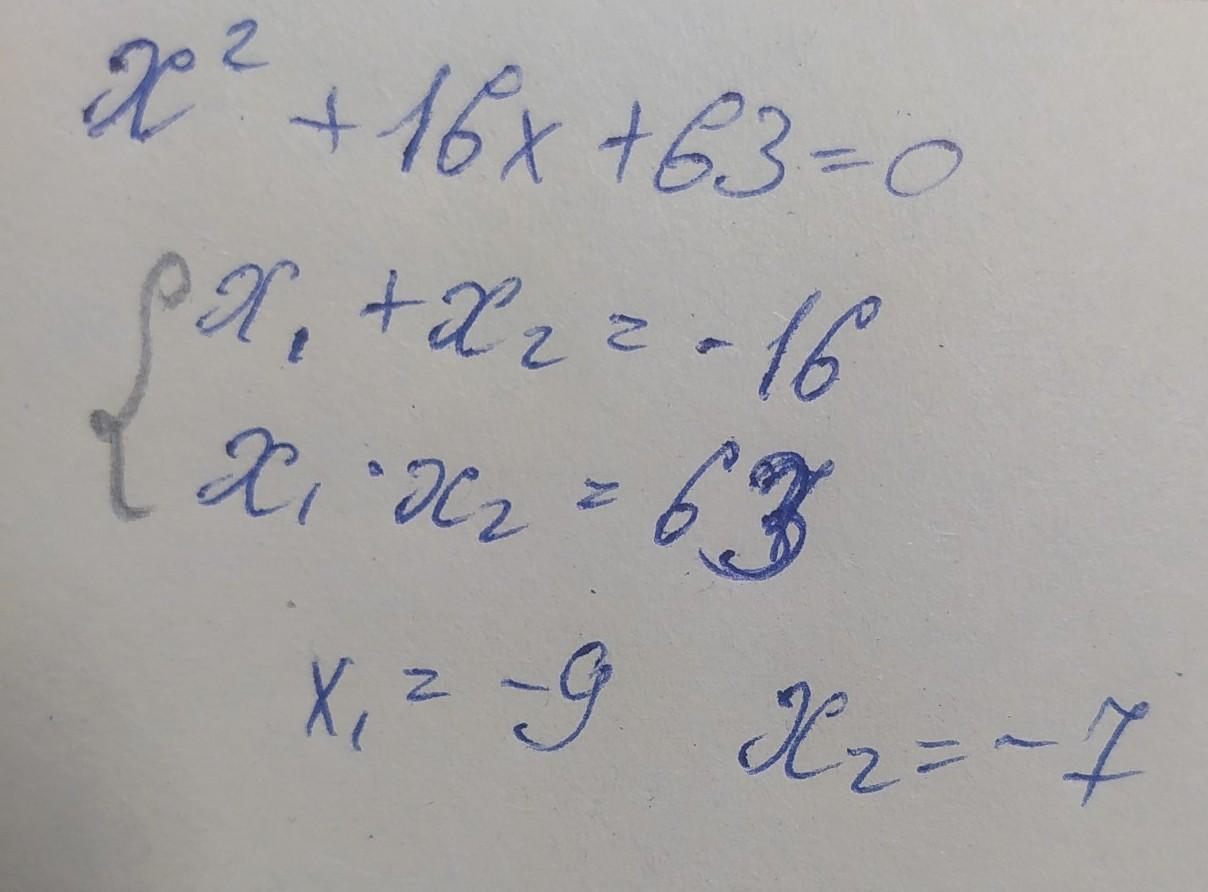 x² + 16x + 63 = 0
{ x₁ + x₂ = -16
x₁ · x₂ = 63
x₁ = -9 x₂ = -7